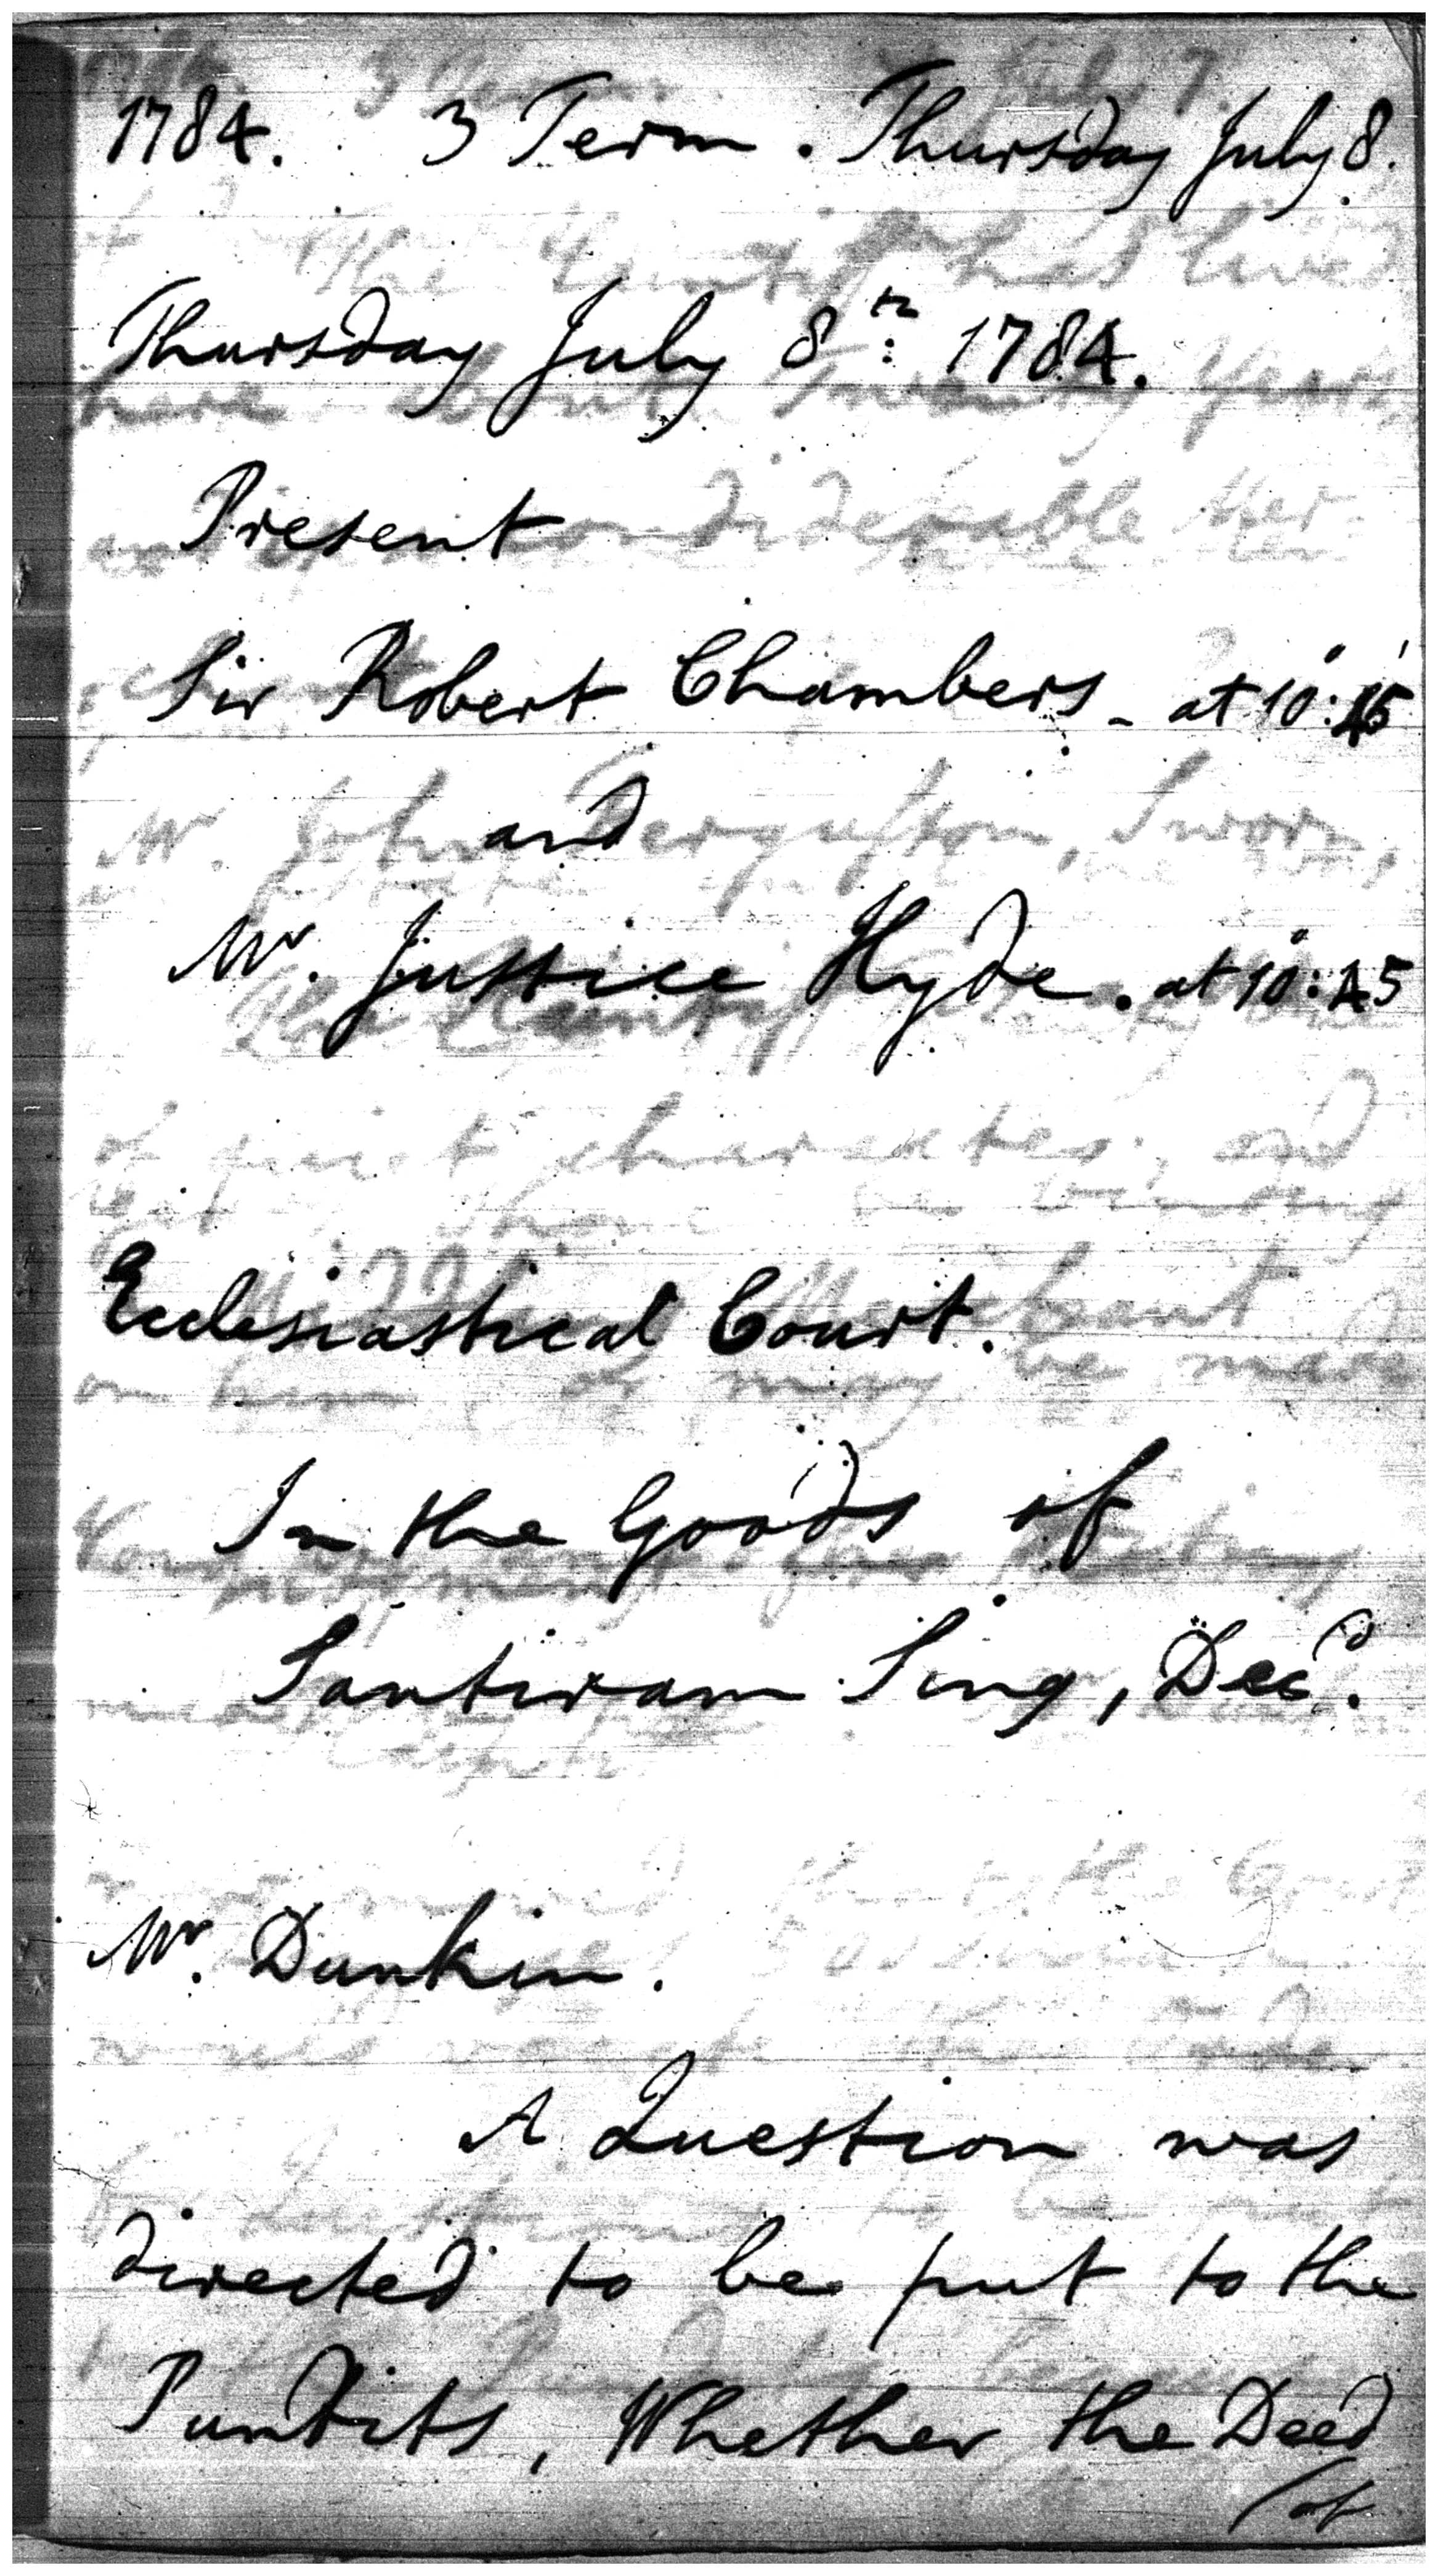 1784. 3 Term. Thursday July 8.
Thursday July 8th: 1784.
Present
Sir Robert Chambers - at 10°: 45'
and
Mr. Justice Hyde. at 10°: 45
Ecclesiastical Court.
In the Goods of
Santiram Sing, Decd.
Mr. Dunkin.
A Question was
directed to be put to the
Pundits, Whether the Deed
/of